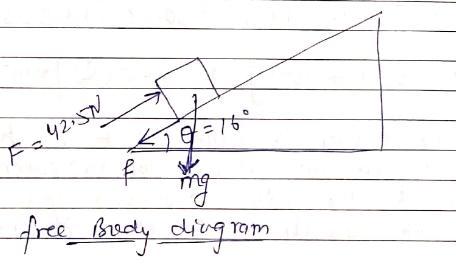 F = 42.5N
θ = 16°
f
mg
free Body diagram